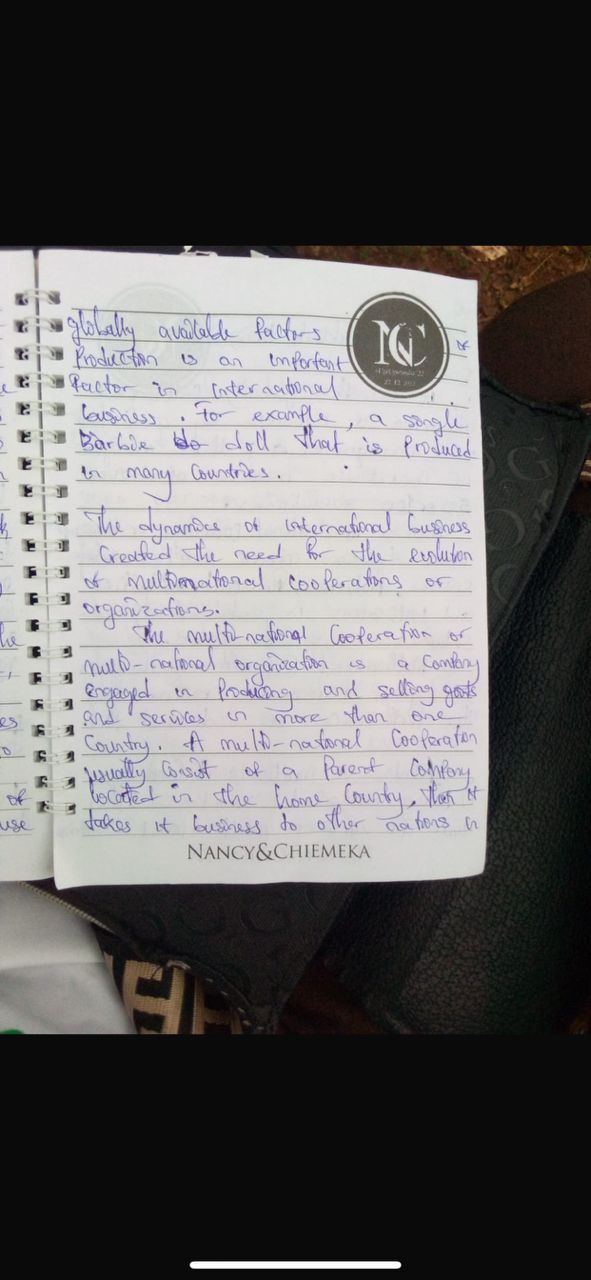 globally available factors
Production is an important
factor in international
business. For example, a single
Barbie do doll that is Produced
in many Countries.
The dynamics of international business
Created the need for the evolution
of multinational cooperations or
organizations.
The multi-national Cooperation or
multi-national organization is a Company
engaged in Producing and selling goods
and services in more than one
Country. A multi-national Cooperation
usually Consist of a Parent Company
located in the home Country, then it
takes it business to other nations in
NANCY&CHIEMEKA
NC
of
use